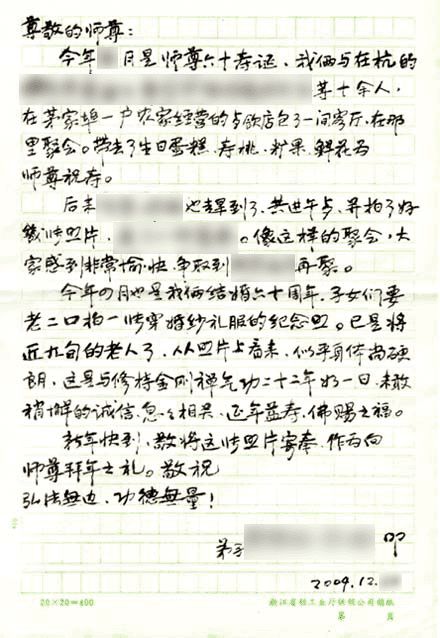 尊敬的师尊：
今年 月是师尊六十寿诞，我俩与在杭的
等十余人，
在茅家埠一户农家经营的与饮店包了一间客厅，在那
里聚会。带去了生日蛋糕、寿桃、籽果、鲜花为
师尊祝寿。
后来 也赶到了，共进午与，并拍了好
幾张照片， 。像这样的聚会，大
家感到非常愉快，争取到 再聚。
今年四月也是我俩结婚六十周年，子女们要
老二口拍一张穿婚纱礼服的纪念照。已是将
近九旬的老人了，从照片上看来，似乎身体尚硬
朗，这是与修持金刚禅气功二十二年如一日，未敢
稍懈的诚信息息相関，延年益寿，佛赐之福。
新年快到，敬将这张照片寄奉，作为向
师尊拜年之礼。敬祝
弘法無边，功德無量！
弟子 叩
2009.12.
20×20＝400 浙江省轻工业厅供销公司
第 页